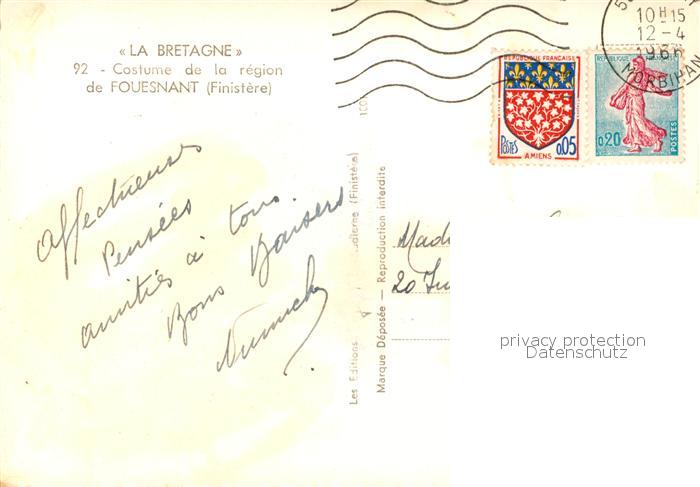 « LA BRETAGNE »
92 - Costume de la région
de FOUESNANT (Finistère)
Affectueuses
Pensées
amitiés à tous.
Bons Baisers
Les Editions
(Finistère)
Marque Déposée — Reproduction interdite
10H15
12-4
1966
MORBIHAN
REPUBLIQUE FRANÇAISE
POSTES
0.05
AMIENS
REPUBLIQUE
0.20
POSTES
Mad
20
privacy protection
Datenschutz